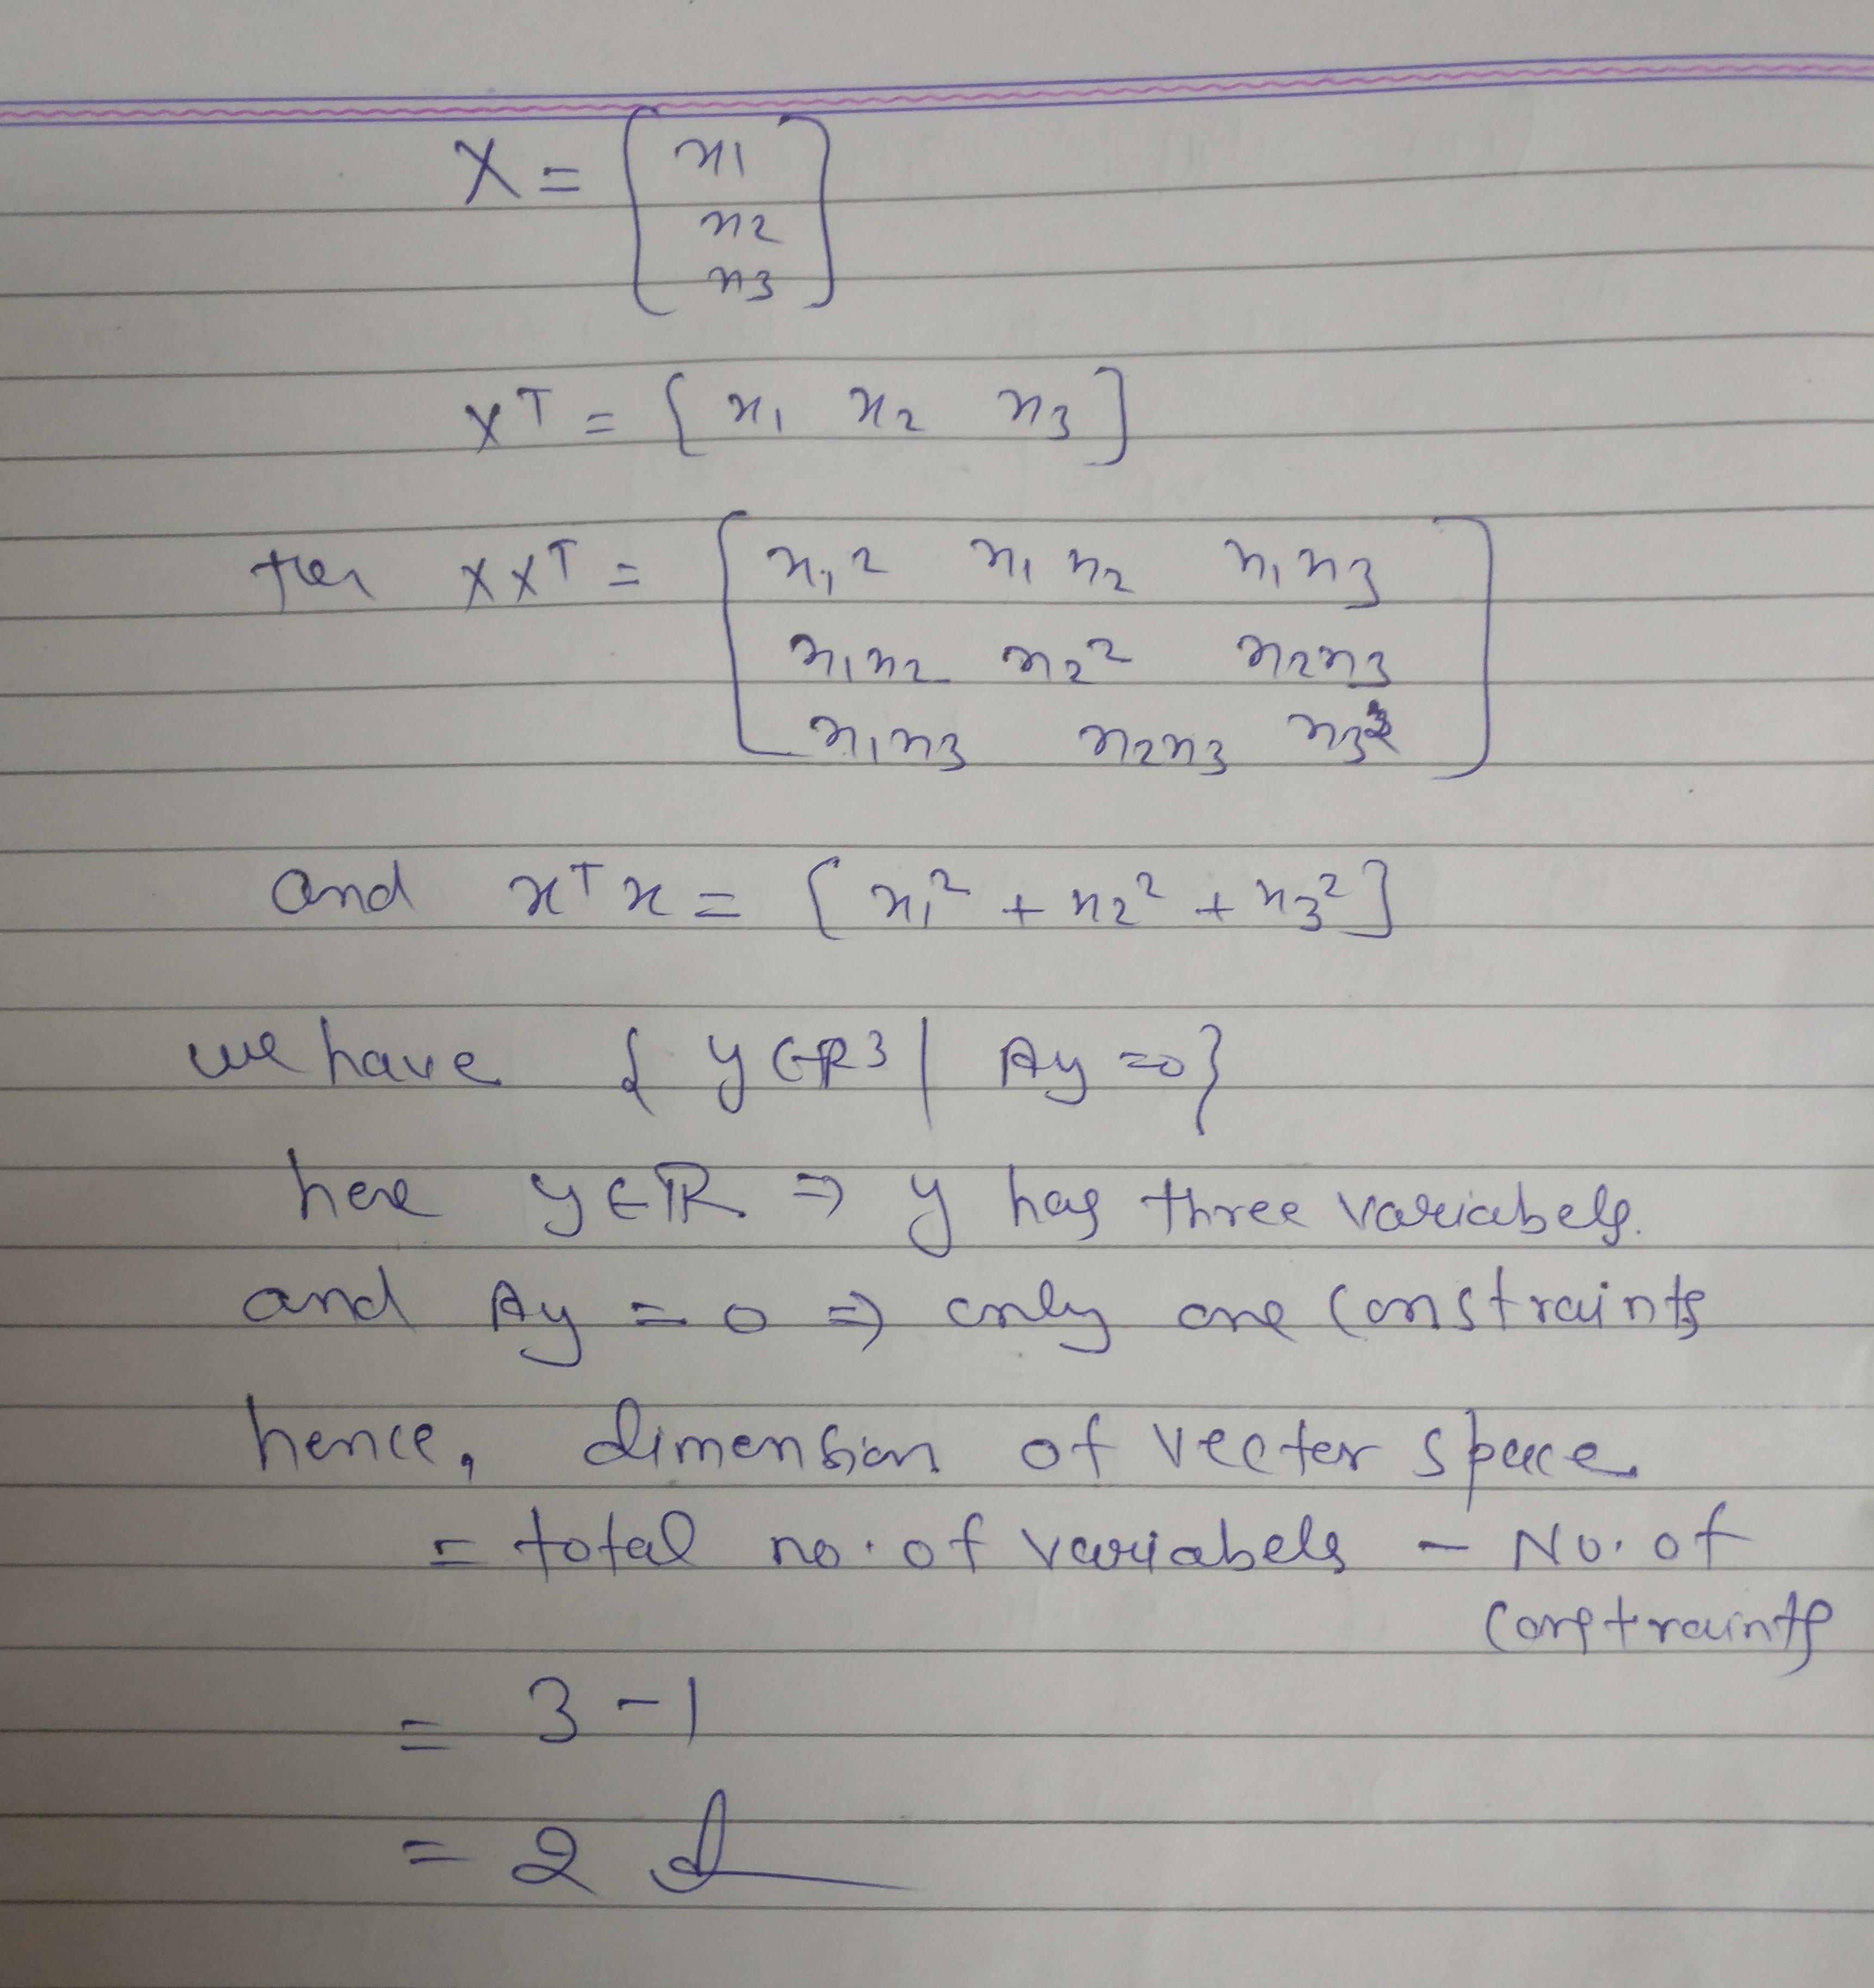 X = [ x1
x2
x3 ]
X^T = [ x1 x2 x3 ]
then XX^T = [ x1^2 x1x2 x1x3
x1x2 x2^2 x2x3
x1x3 x2x3 x3^2 ]
and x^T x = [ x1^2 + x2^2 + x3^2 ]
we have { y ∈ R^3 | Ay = 0 }
here y ∈ R ⇒ y has three variabels.
and Ay = 0 ⇒ only one constraints
hence, dimension of vector space
= total no. of variabels - No. of
constraints
= 3 - 1
= 2